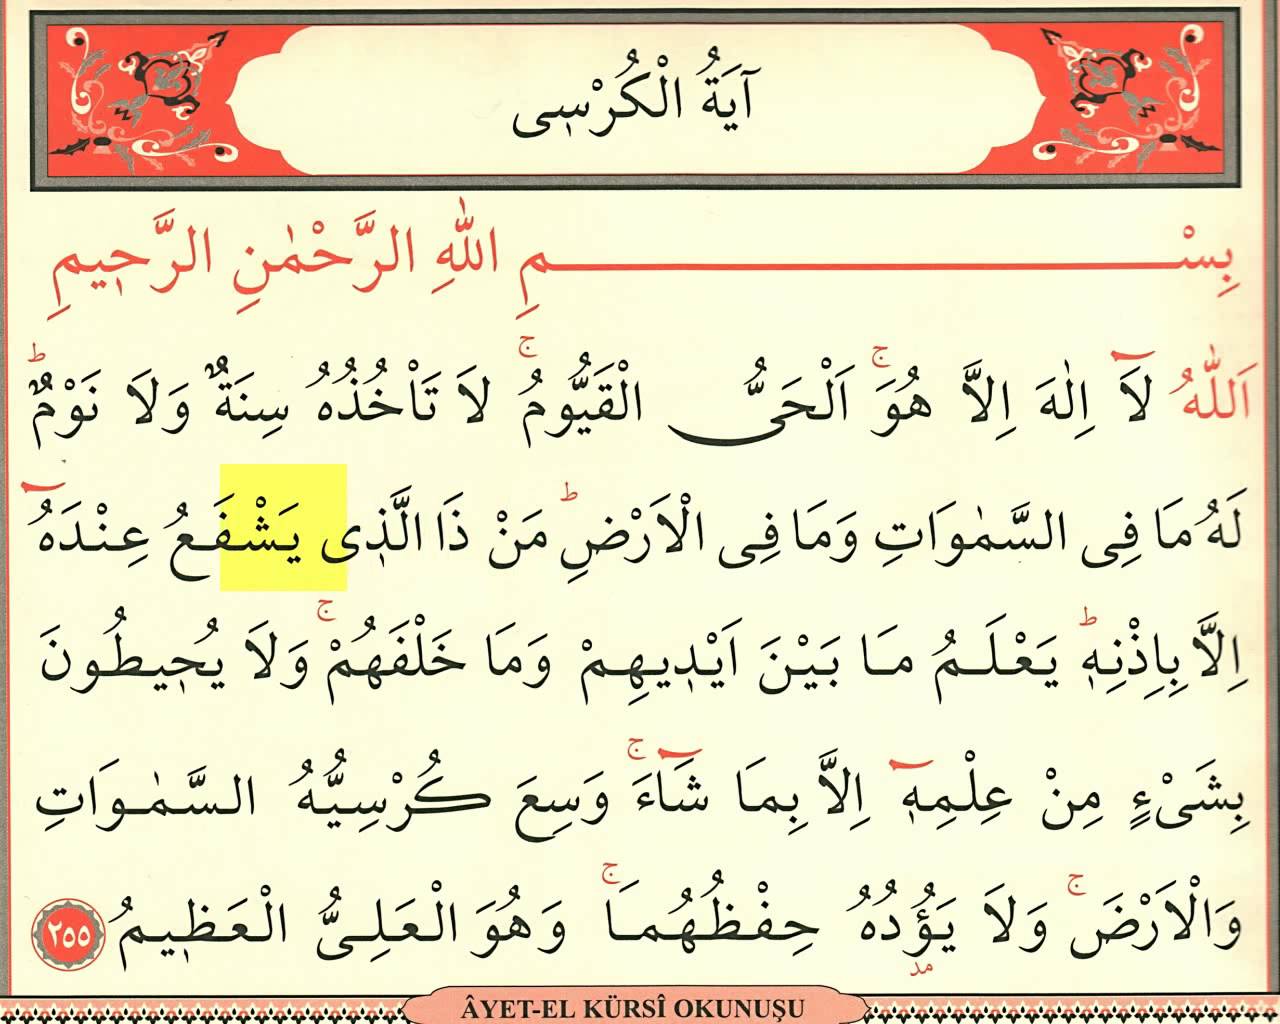 آيَةُ الْكُرْسٖى
بِسْمِ اللّٰهِ الرَّحْمٰنِ الرَّحٖيمِ
اَللّٰهُ لَٓا اِلٰهَ اِلَّا هُوَۚ اَلْحَىُّ الْقَيُّومُۚ لَا تَاْخُذُهُ سِنَةٌ وَلَا نَوْمٌؕ
لَهُ مَا فِى السَّمٰوَاتِ وَمَا فِى الْاَرْضِؕ مَنْ ذَا الَّذٖى يَشْفَعُ عِنْدَهُٓ
اِلَّا بِاِذْنِهٖؕ يَعْلَمُ مَا بَيْنَ اَيْدٖيهِمْ وَمَا خَلْفَهُمْۚ وَلَا يُحٖيطُونَ
بِشَىْءٍ مِنْ عِلْمِهٖٓ اِلَّا بِمَا شَٓاءَۚ وَسِعَ كُرْسِيُّهُ السَّمٰوَاتِ
وَالْاَرْضَۚ وَلَا يَؤُدُهُ حِفْظُهُمَاۚ وَهُوَ الْعَلِىُّ الْعَظٖيمُ ٢٥٥
مد
ÂYET-EL KÜRSÎ OKUNUŞU